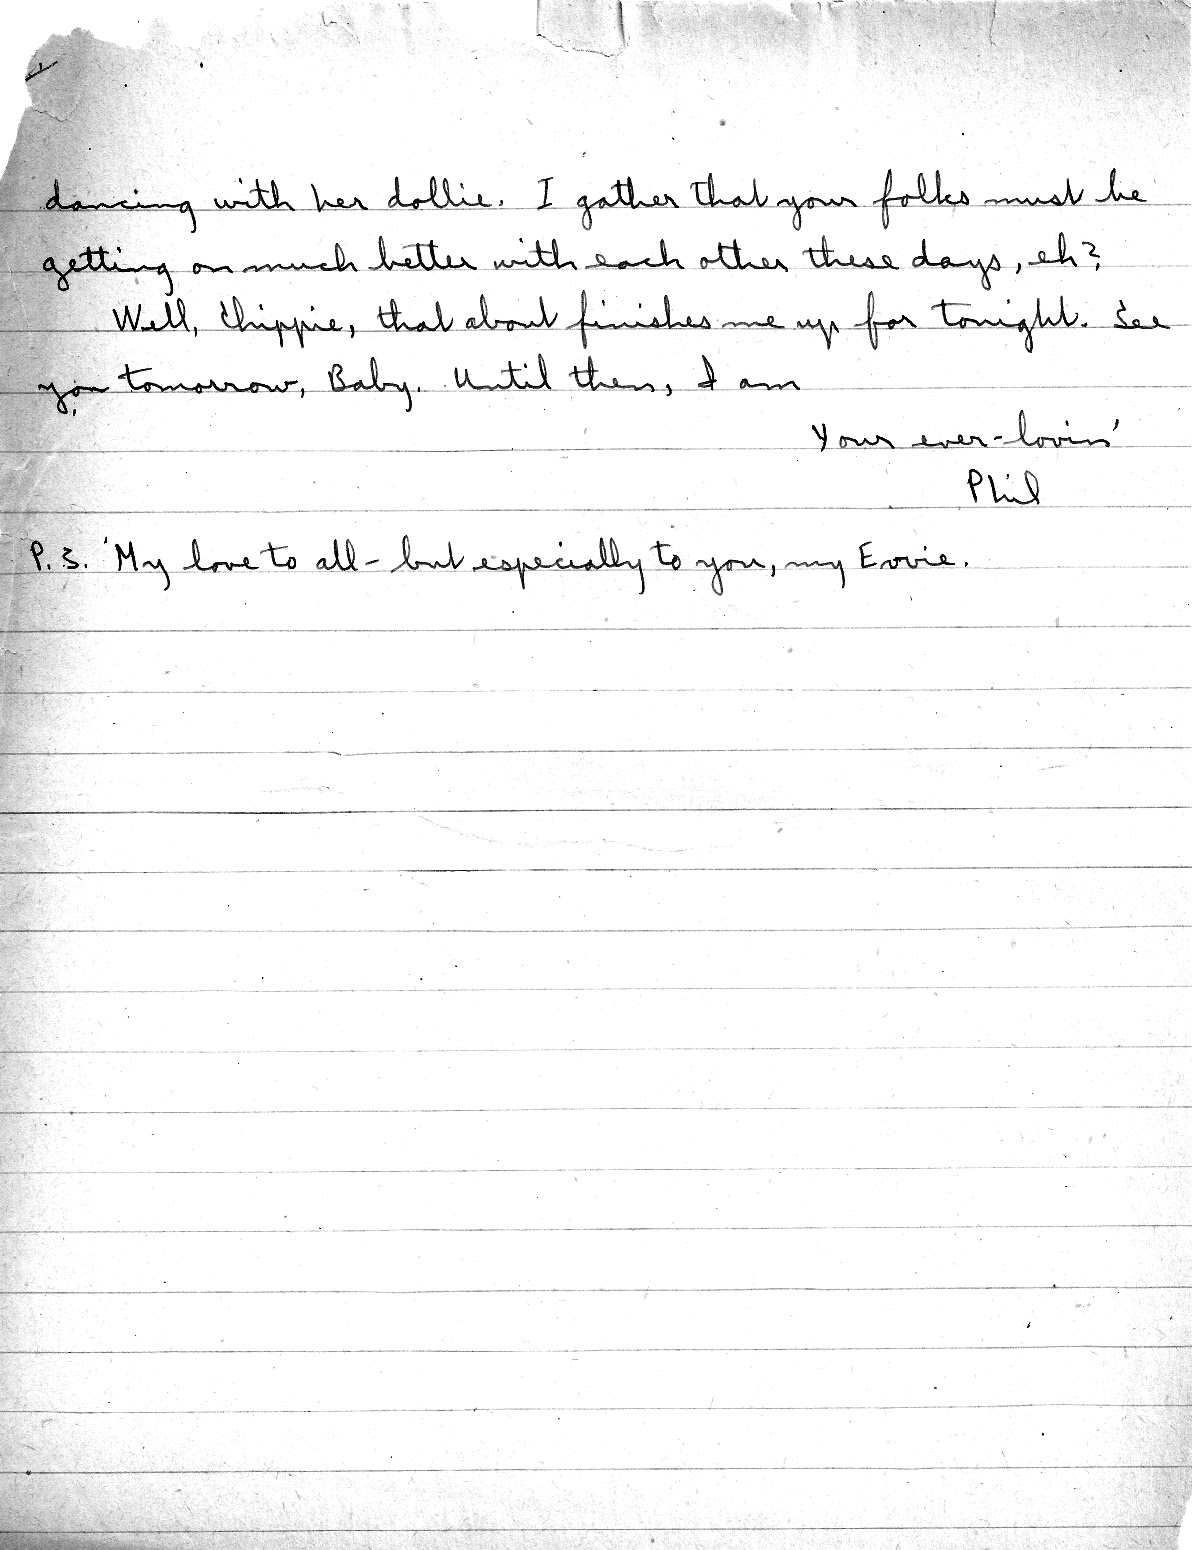 dancing with her dollie. I gather that your folks must be
getting on much better with each other these days, eh?
Well, Chippie, that about finishes me up for tonight. See
you tomorrow, Baby. Until then, I am
Your ever-lovin'
Phil
P.S. My love to all - but especially to you, my Evvie.